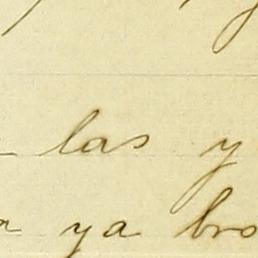 las y
ya bro